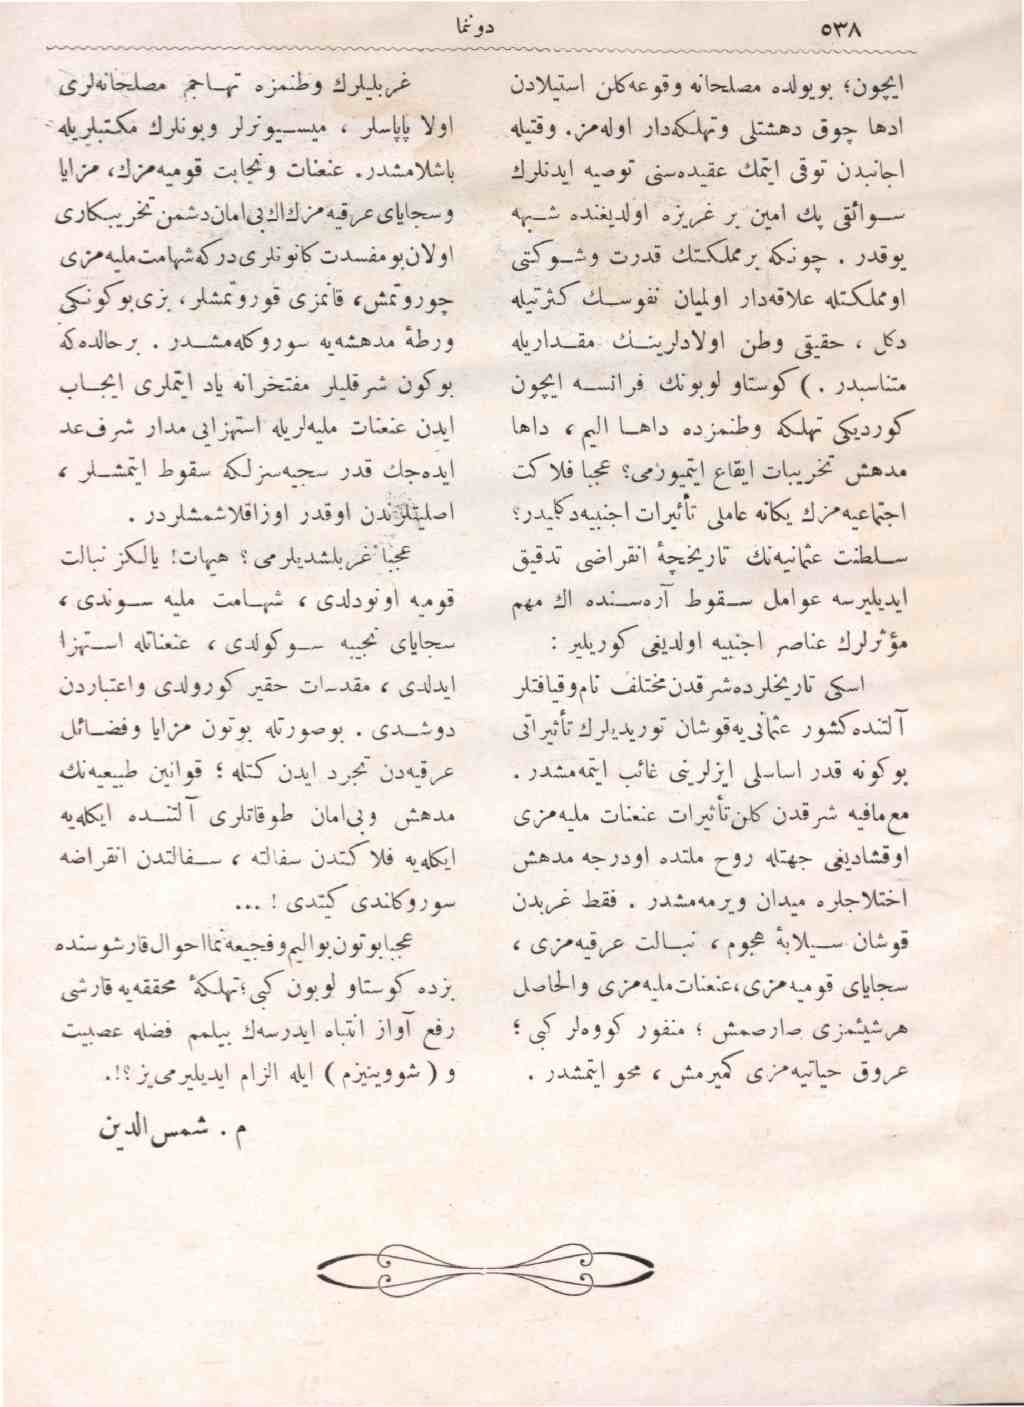 ٥٣٨
دونما
ایچون؛ بویولده مصلحانه وقوعه‌كلن استیلادن
ادها چوق دهشتلی وتهلكه‌دار اوله‌مز. وقتیله
اجانبدن توقی ایتمك عقیده‌سنی توصیه ایدنلرك
سوائقی پك امین بر غریزه اولدیغنده شبهه
یوقدر . چونكه بر مملكتك قدرت وشوكتی
اومملكتله علاقه‌دار اولمیان نفوسك كثرتیله
دكل ، حقیقی وطن اولادلرینك مقداریله
متناسبدر .) كوستاو لوبونك فرانسه ایچون
كوردیكی تهلكه وطنمزده داها الیم ، داها
مدهش تخریبات ایقاع ایتمیورمی؟ عجبا فلاكت
اجتماعیه‌مزك یكانه عاملی تأثیرات اجنبیه‌دكلیدر؟
سلطنت عثمانیه‌نك تاریخچهٔ انقراضی تدقیق
ایدیلیرسه عوامل سقوط آره‌سنده اك مهم
مؤثرلرك عناصر اجنبیه اولدیغی كوریلیر :
اسكی تاریخلرده شرقدن مختلف نام وقیافتلر
آلتنده كشور عثمانی‌یه قوشان توریدیلرك تأثیراتی
بوكونه قدر اساسلی ایزلرینی غائب ایتمه‌مشدر .
مع‌مافیه شرقدن كلن تأثیرات عنعنات ملیه‌مزی
اوقشادیغی جهتله روح ملتده اودرجه مدهش
اختلاجلره میدان ویرمه‌مشدر . فقط غربدن
قوشان سیلابهٔ هجوم ، نبالت عرقیه‌مزی ،
سجایای قومیه‌مزی، عنعنات ملیه‌مزی والحاصل
هرشیئمزی صارصمش ؛ منفور كووه‌لر كبی ؛
عروق حیاتیه‌مزی كمیرمش ، محو ایتمشدر .
غربلیلرك وطنمزه تهاجم مصلحانه‌لری
اولا پاپاسلر ، میسیونرلر وبونلرك مكتبلریله
باشلامشدر. عنعنات ونجابت قومیه‌مزك، مزایا
وسجایای عرقیه‌مزك اك بی‌امان دشمن تخریبكاری
اولان بومفسدت كانونلری‌دركه شهامت ملیه‌مزی
چوروتمش، قانمزی قوروتمشلر، بزی بوكونكی
ورطهٔ مدهشه‌یه سوروكله‌مشدر . برحالده‌كه
بوكون شرقلیلر مفتخرانه یاد ایتملری ایجاب
ایدن عنعنات ملیه‌لریله استهزایی مدار شرف عد
ایده‌جك قدر سجیه‌سزلكه سقوط ایتمشلر ،
اصلیتلرندن اوقدر اوزاقلاشمشلردر .
عجبا غربلشدیلرمی ؟ هیهات! یالكز نبالت
قومیه اونودلدی ، شهامت ملیه سوندی ،
سجایای نجیبه سوكولدی ، عنعناتله استهزا
ایدلدی ، مقدسات حقیر كورولدی واعتباردن
دوشدی . بوصورتله بوتون مزایا وفضائل
عرقیه‌دن تجرد ایدن كتله ؛ قوانین طبیعیه‌نك
مدهش وبی‌امان طوقاتلری آلتنده ایكله‌یه
ایكله‌یه فلاكتدن سفالته ، سفالتدن انقراضه
سوروكلندی كیتدی ! ...
عجبا بوتون بو الیم وفجیعه‌نما احوال قارشوسنده
بزده كوستاو لوبون كبی؛ تهلكهٔ محققه‌یه قارشی
رفع آواز انتباه ایدرسه‌ك بیلمم فضله عصبیت
و ( شووینیزم ) ایله الزام ایدیلیرمی‌یز ؟!.
م . شمس‌الدین